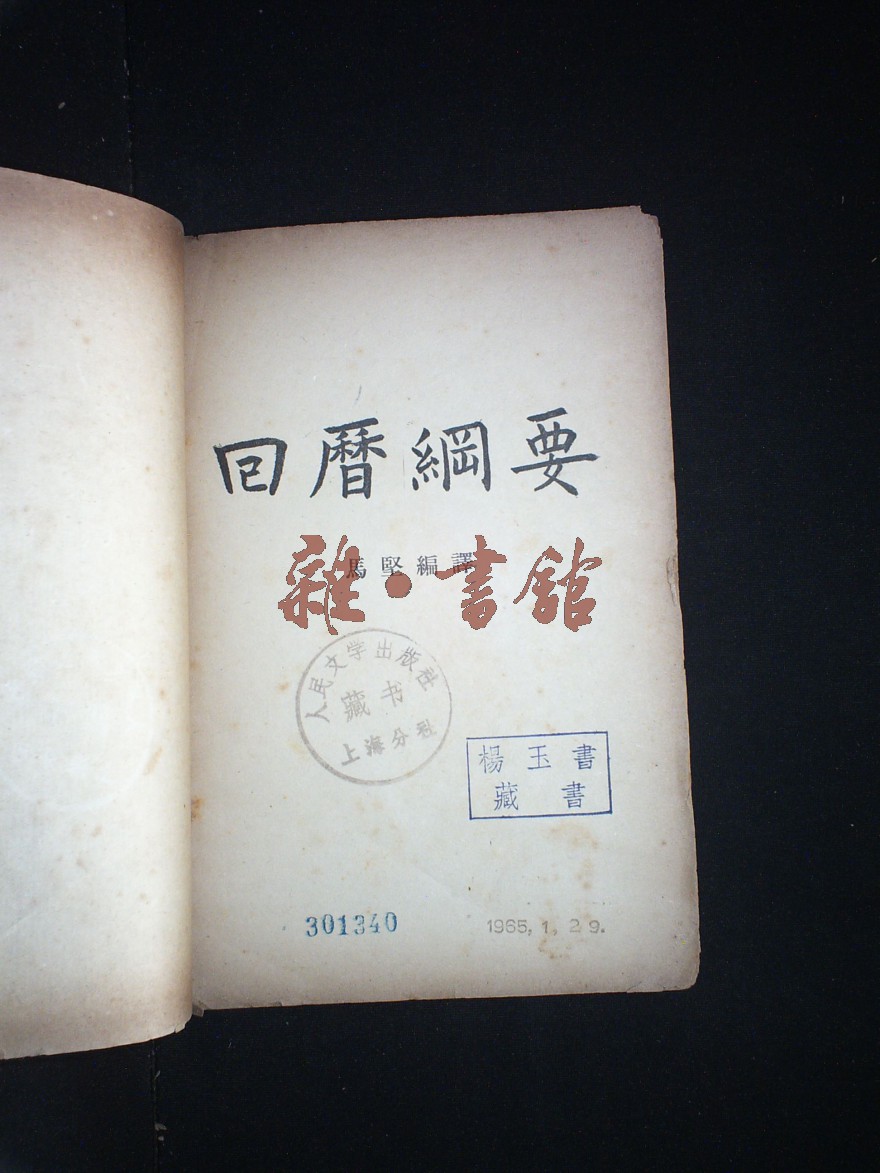 回曆綱要
馬堅編譯
雜·書館
人民文学出版社
藏书
上海分社
楊玉書
藏書
301340
1965,1,29.